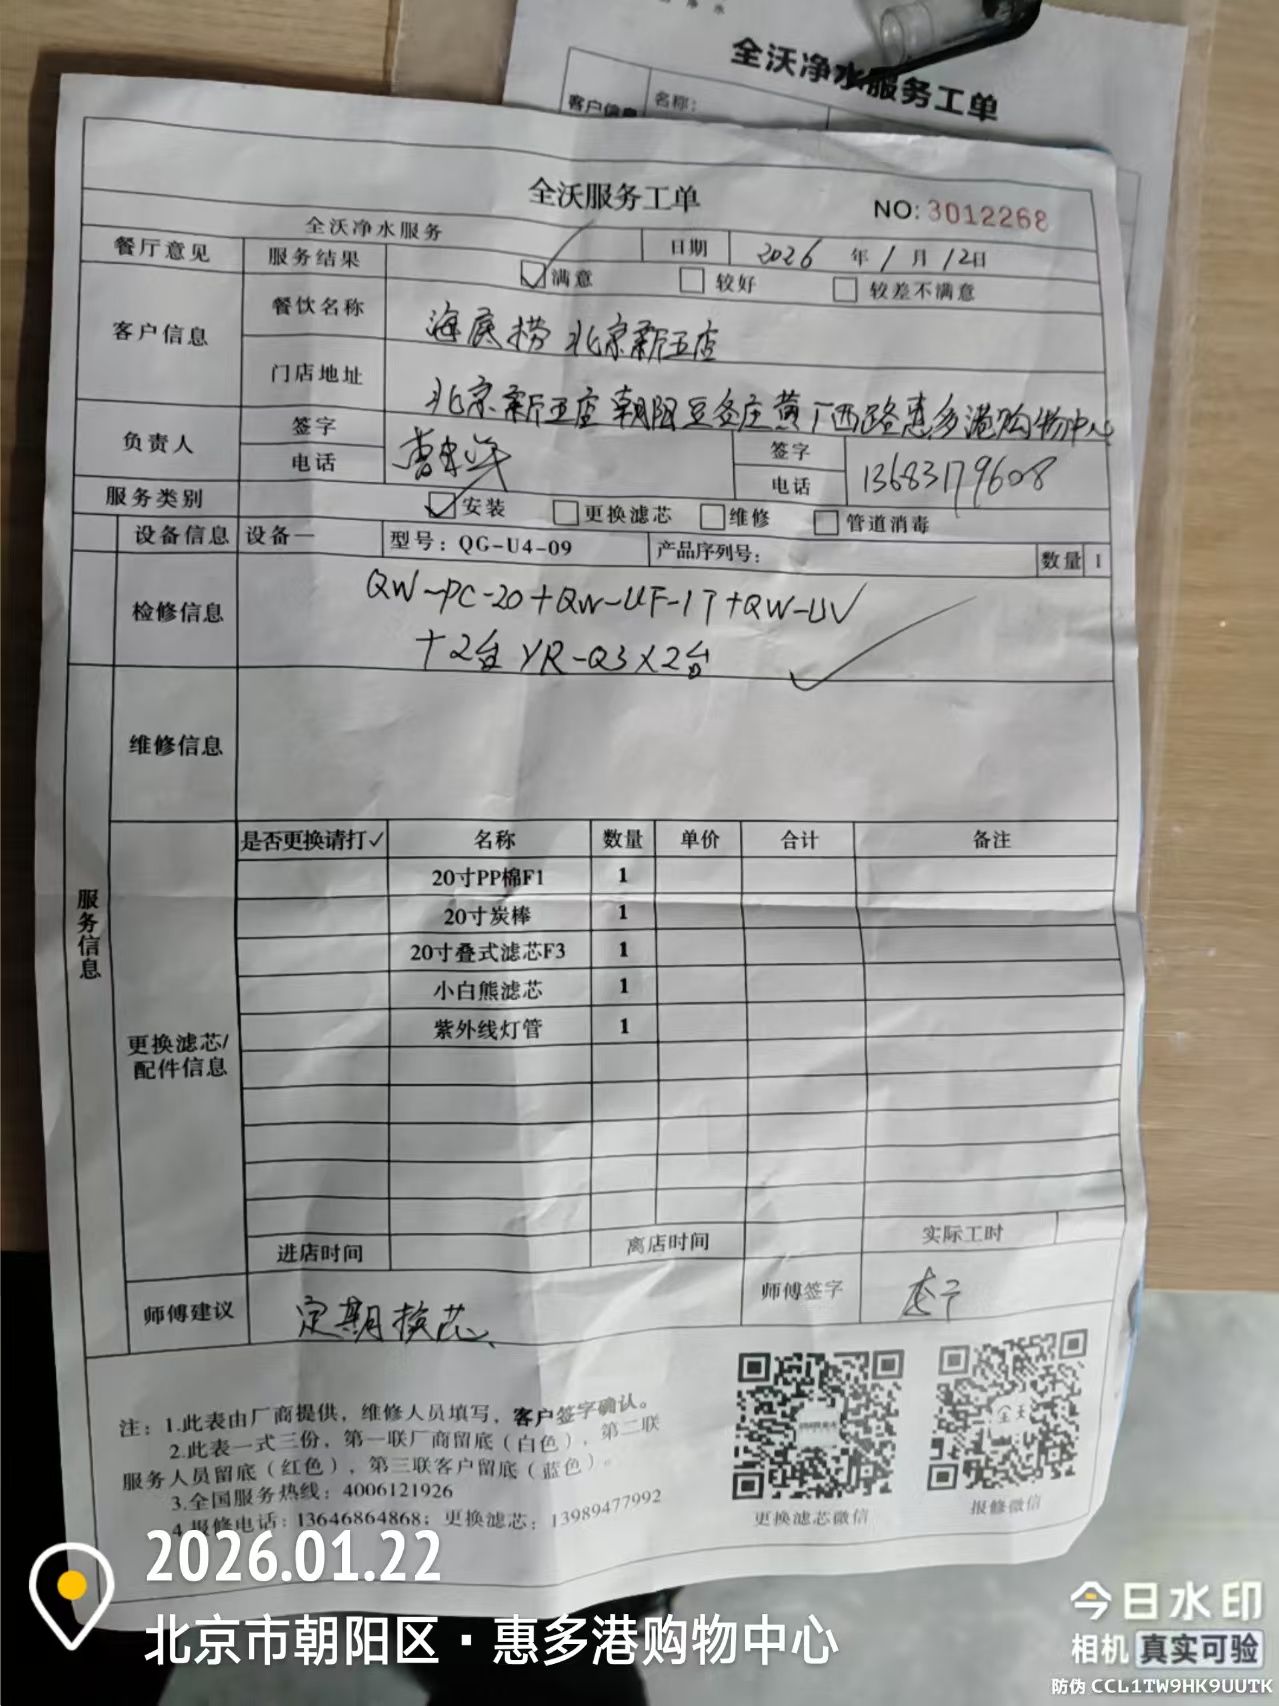 全沃净水服务工单
客户信息 名称:
全沃服务工单
NO: 3012268
全沃净水服务 日期 2026 年 1 月 12 日
餐厅意见 服务结果 满意 较好 较差不满意
客户信息 餐饮名称 海底捞 北京新五店
门店地址 北京新五店 朝阳豆各庄黄厂西路惠多港购物中心
负责人 签字 签字
电话 电话 13683179608
服务类别 安装 更换滤芯 维修 管道消毒
设备信息 设备一 型号: QG-U4-09 产品序列号: 数量 1
检修信息 QW-PC-20+QW-UF-1T+QW-UV
+2台 YR-Q3X2台
维修信息
服务信息
是否更换请打✓ 名称 数量 单价 合计 备注
20寸PP棉F1 1
20寸炭棒 1
20寸叠式滤芯F3 1
小白熊滤芯 1
紫外线灯管 1
更换滤芯/
配件信息
进店时间 离店时间 实际工时
师傅建议 定期换芯 师傅签字
注: 1.此表由厂商提供, 维修人员填写, 客户签字确认。
2.此表一式三份, 第一联厂商留底(白色), 第二联
服务人员留底(红色), 第三联客户留底(蓝色)。
3.全国服务热线: 4006121926
4.报修电话: 13646864868; 更换滤芯: 13989477992
更换滤芯微信 报修微信
2026.01.22
北京市朝阳区·惠多港购物中心
今日水印
相机 真实可验
防伪 CCL1TW9HK9UUTK